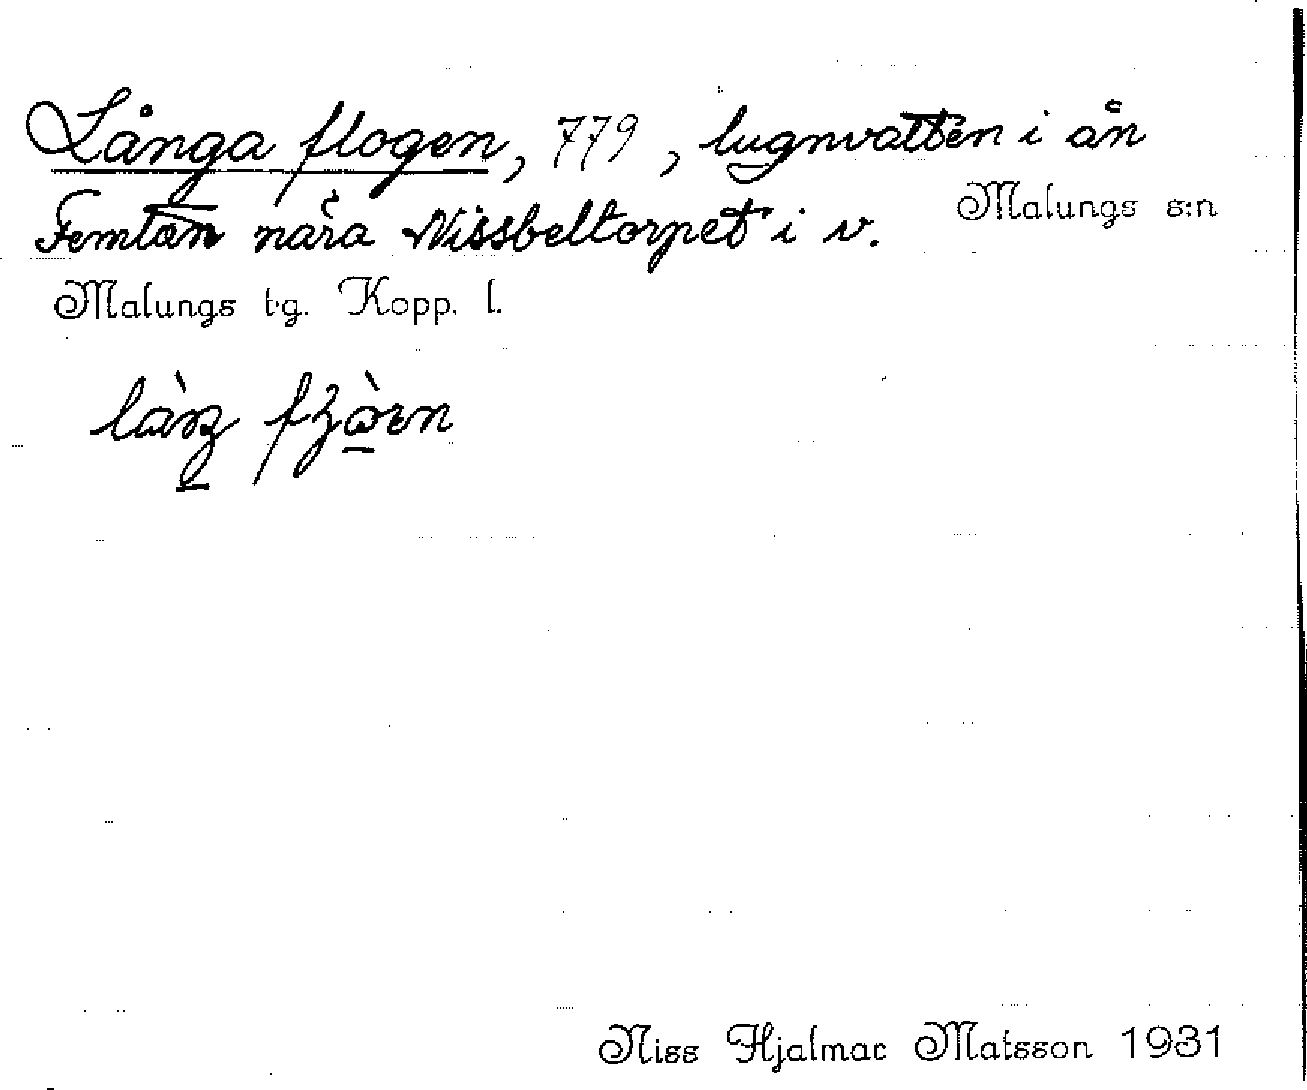 Långa flogen, 779, lugnvatten i ån
Femtån nära Nissbeltorpet i v. Malungs s:n
Malungs t.g. Kopp. l.
Niss Hjalmar Matsson 1931